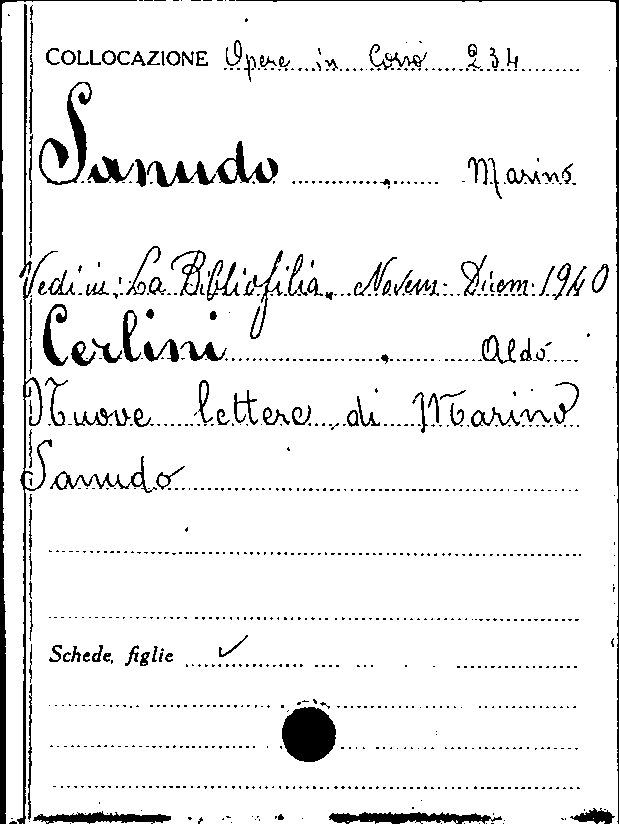 COLLOCAZIONE Opere in Corso 234
Sanudo, Marino
Vedi in: La Bibliofilia, Novem- Dicem. 1940
Cerlini, Aldo
Nuove lettere di Marino
Sanudo
Schede, figlie ✓